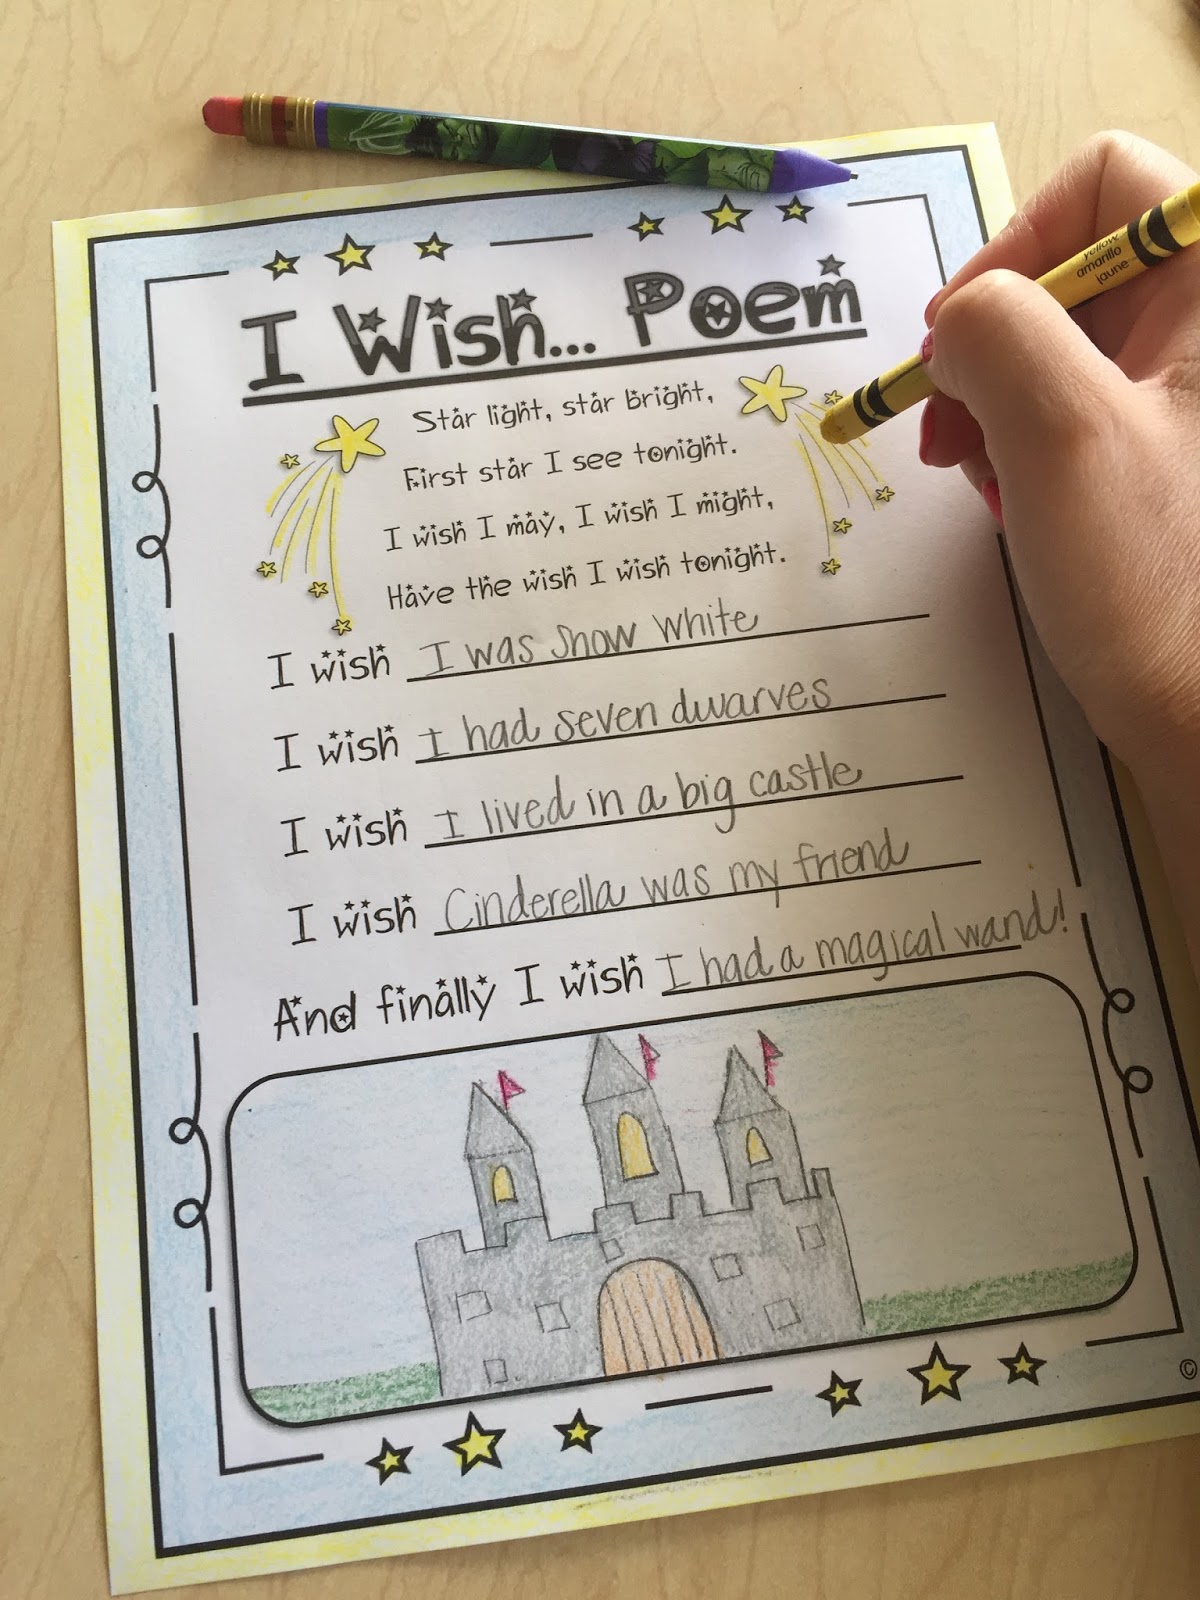 yellow
amarillo
jaune
I Wish... Poem
Star light, star bright,
First star I see tonight.
I wish I may, I wish I might,
Have the wish I wish tonight.
I wish I was Snow White
I wish I had seven dwarves
I wish I lived in a big castle
I wish Cinderella was my friend
And finally I wish I had a magical wand!
©